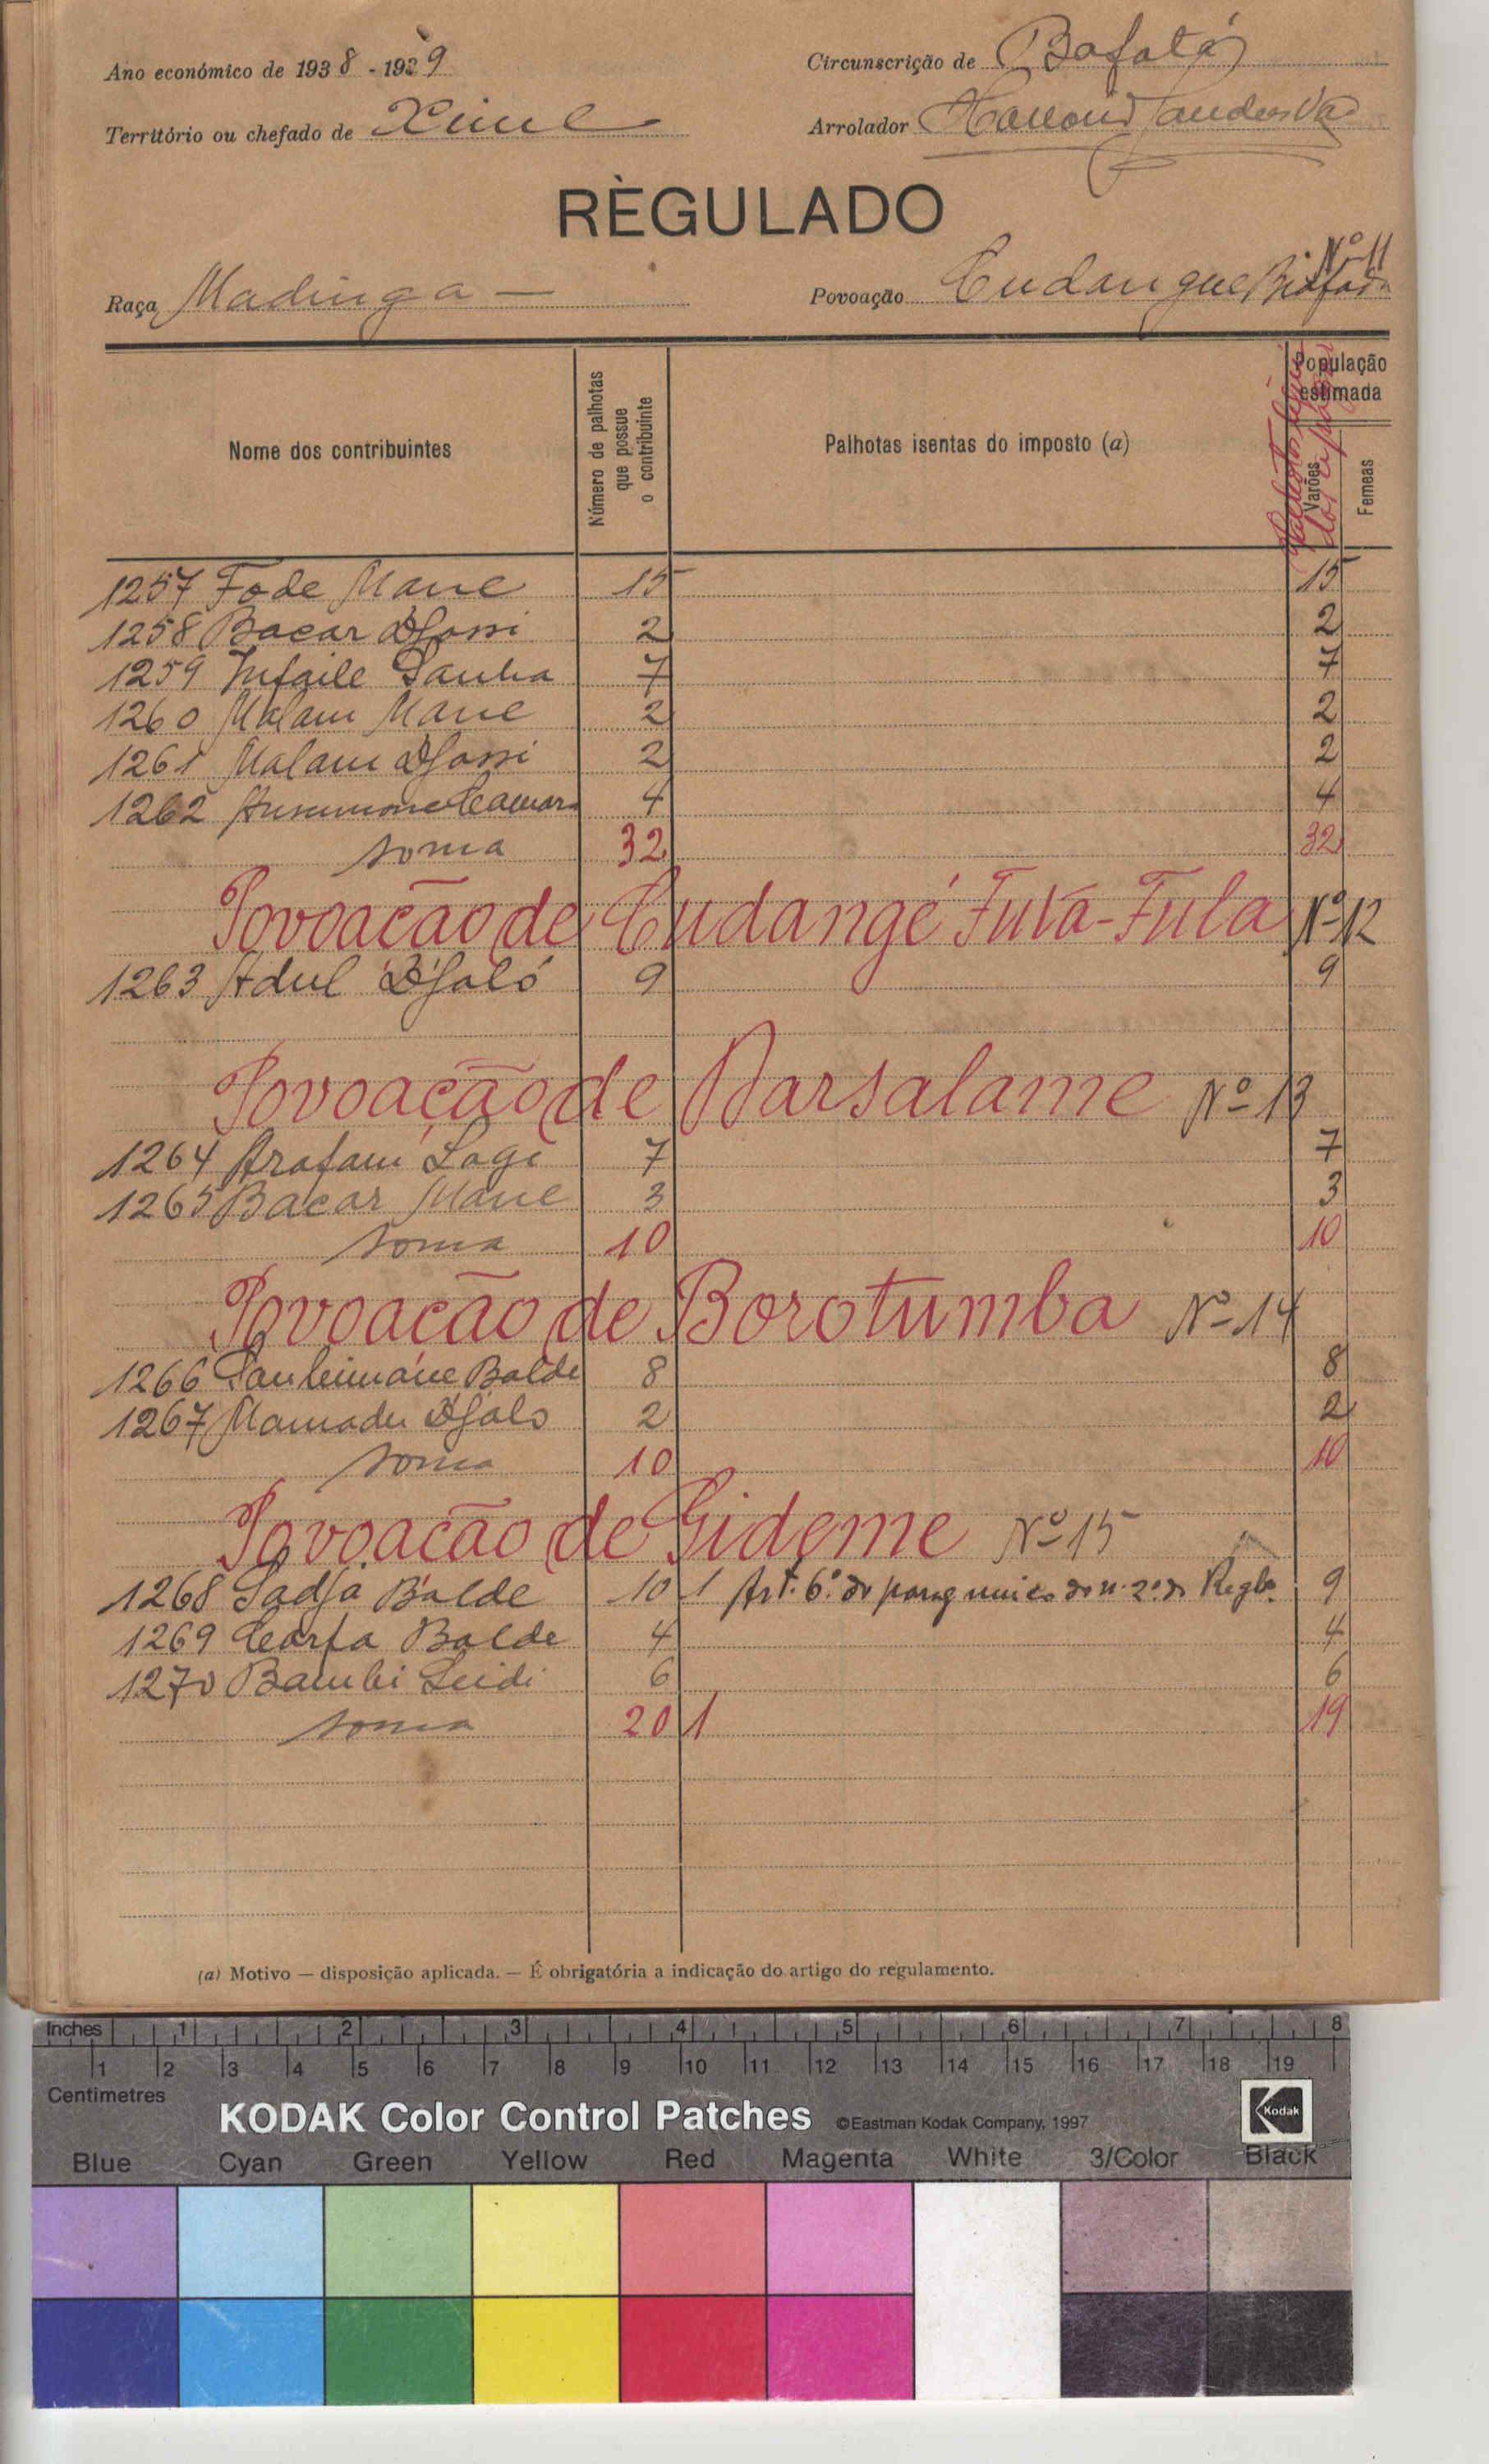 Ano económico de 1938 - 1939
Circunscrição de Bafatá
Território ou chefado de Xime
Arrolador
RÈGULADO
Nº 11
Raça Madinga —
Povoação Cudangue Biafada
Nome dos contribuintes
Número de palhotas que possue o contribuinte
Palhotas isentas do imposto (a)
População estimada
Varões
Femeas
1257 Fode Mane 15 15
1258 Bacar Djassi 2 2
1259 Infaile Sanha 7 7
1260 Malam Mane 2 2
1261 Malam Djassi 2 2
1262 Camara 4 4
soma 32 32
Povoação de Cudangé Futa-Fula Nº 12
1263 Adul Djaló 9 9
Povoação de Darsalame Nº 13
1264 Arafam Sagi 7 7
1265 Bacar Mane 3 3
soma 10 10
Povoação de Borotumba Nº 14
1266 Sauleimane Balde 8 8
1267 Mamadu Djalo 2 2
soma 10 10
Povoação de Gideme Nº 15
1268 Sadja Balde 10 1 Art. 6º. do parag unico do n. 2º. do Reglo. 9
1269 Gearfa Balde 4 4
1270 Bambi Seidi 6 6
soma 20 1 19
(a) Motivo — disposição aplicada. — É obrigatória a indicação do artigo do regulamento.
Inches 1 2 3 4 5 6 7 8
1 2 3 4 5 6 7 8 9 10 11 12 13 14 15 16 17 18 19
Centimetres
KODAK Color Control Patches ©Eastman Kodak Company, 1997 Kodak
Blue Cyan Green Yellow Red Magenta White 3/Color Black